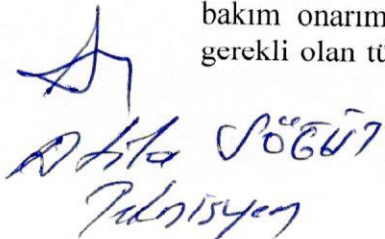 bakım onarım
gerekli olan tü
Atila SÖĞÜT
Teknisyen